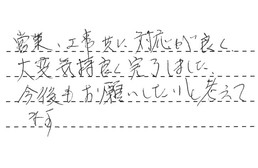 営業、工事共に対応が良く
大変気持良く完了しました。
今後もお願いしたいと考えて
ます